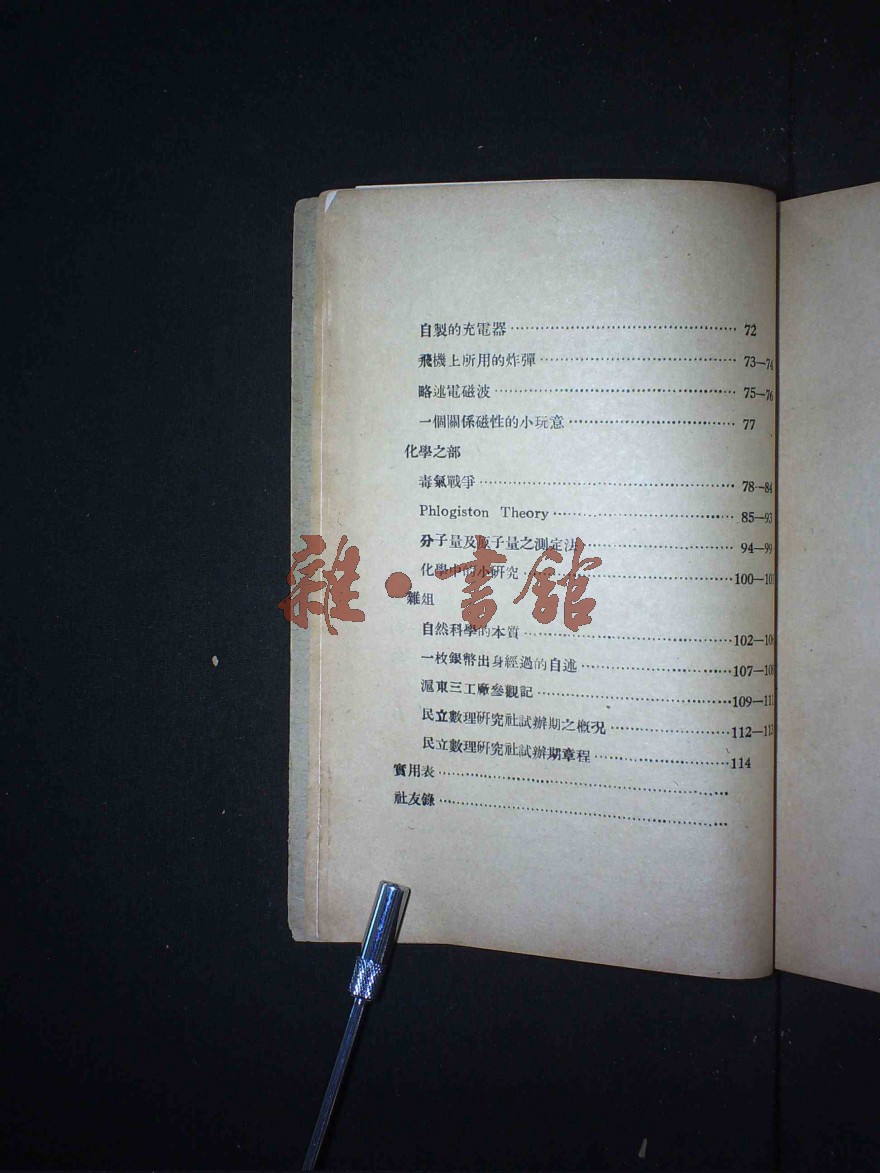 自製的充電器 72
飛機上所用的炸彈 73—74
略述電磁波 75—76
一個關係磁性的小玩意 77
化學之部
毒氣戰爭 78—84
Phlogiston Theory 85—93
分子量及原子量之測定法 94—99
化學中的小研究 100—101
雜俎
自然科學的本質 102—106
一枚銀幣出身經過的自述 107—108
滬東三工廠參觀記 109—111
民立數理研究社試辦期之概况 112—113
民立數理研究社試辦期章程 114
實用表
社友錄
雜·書館